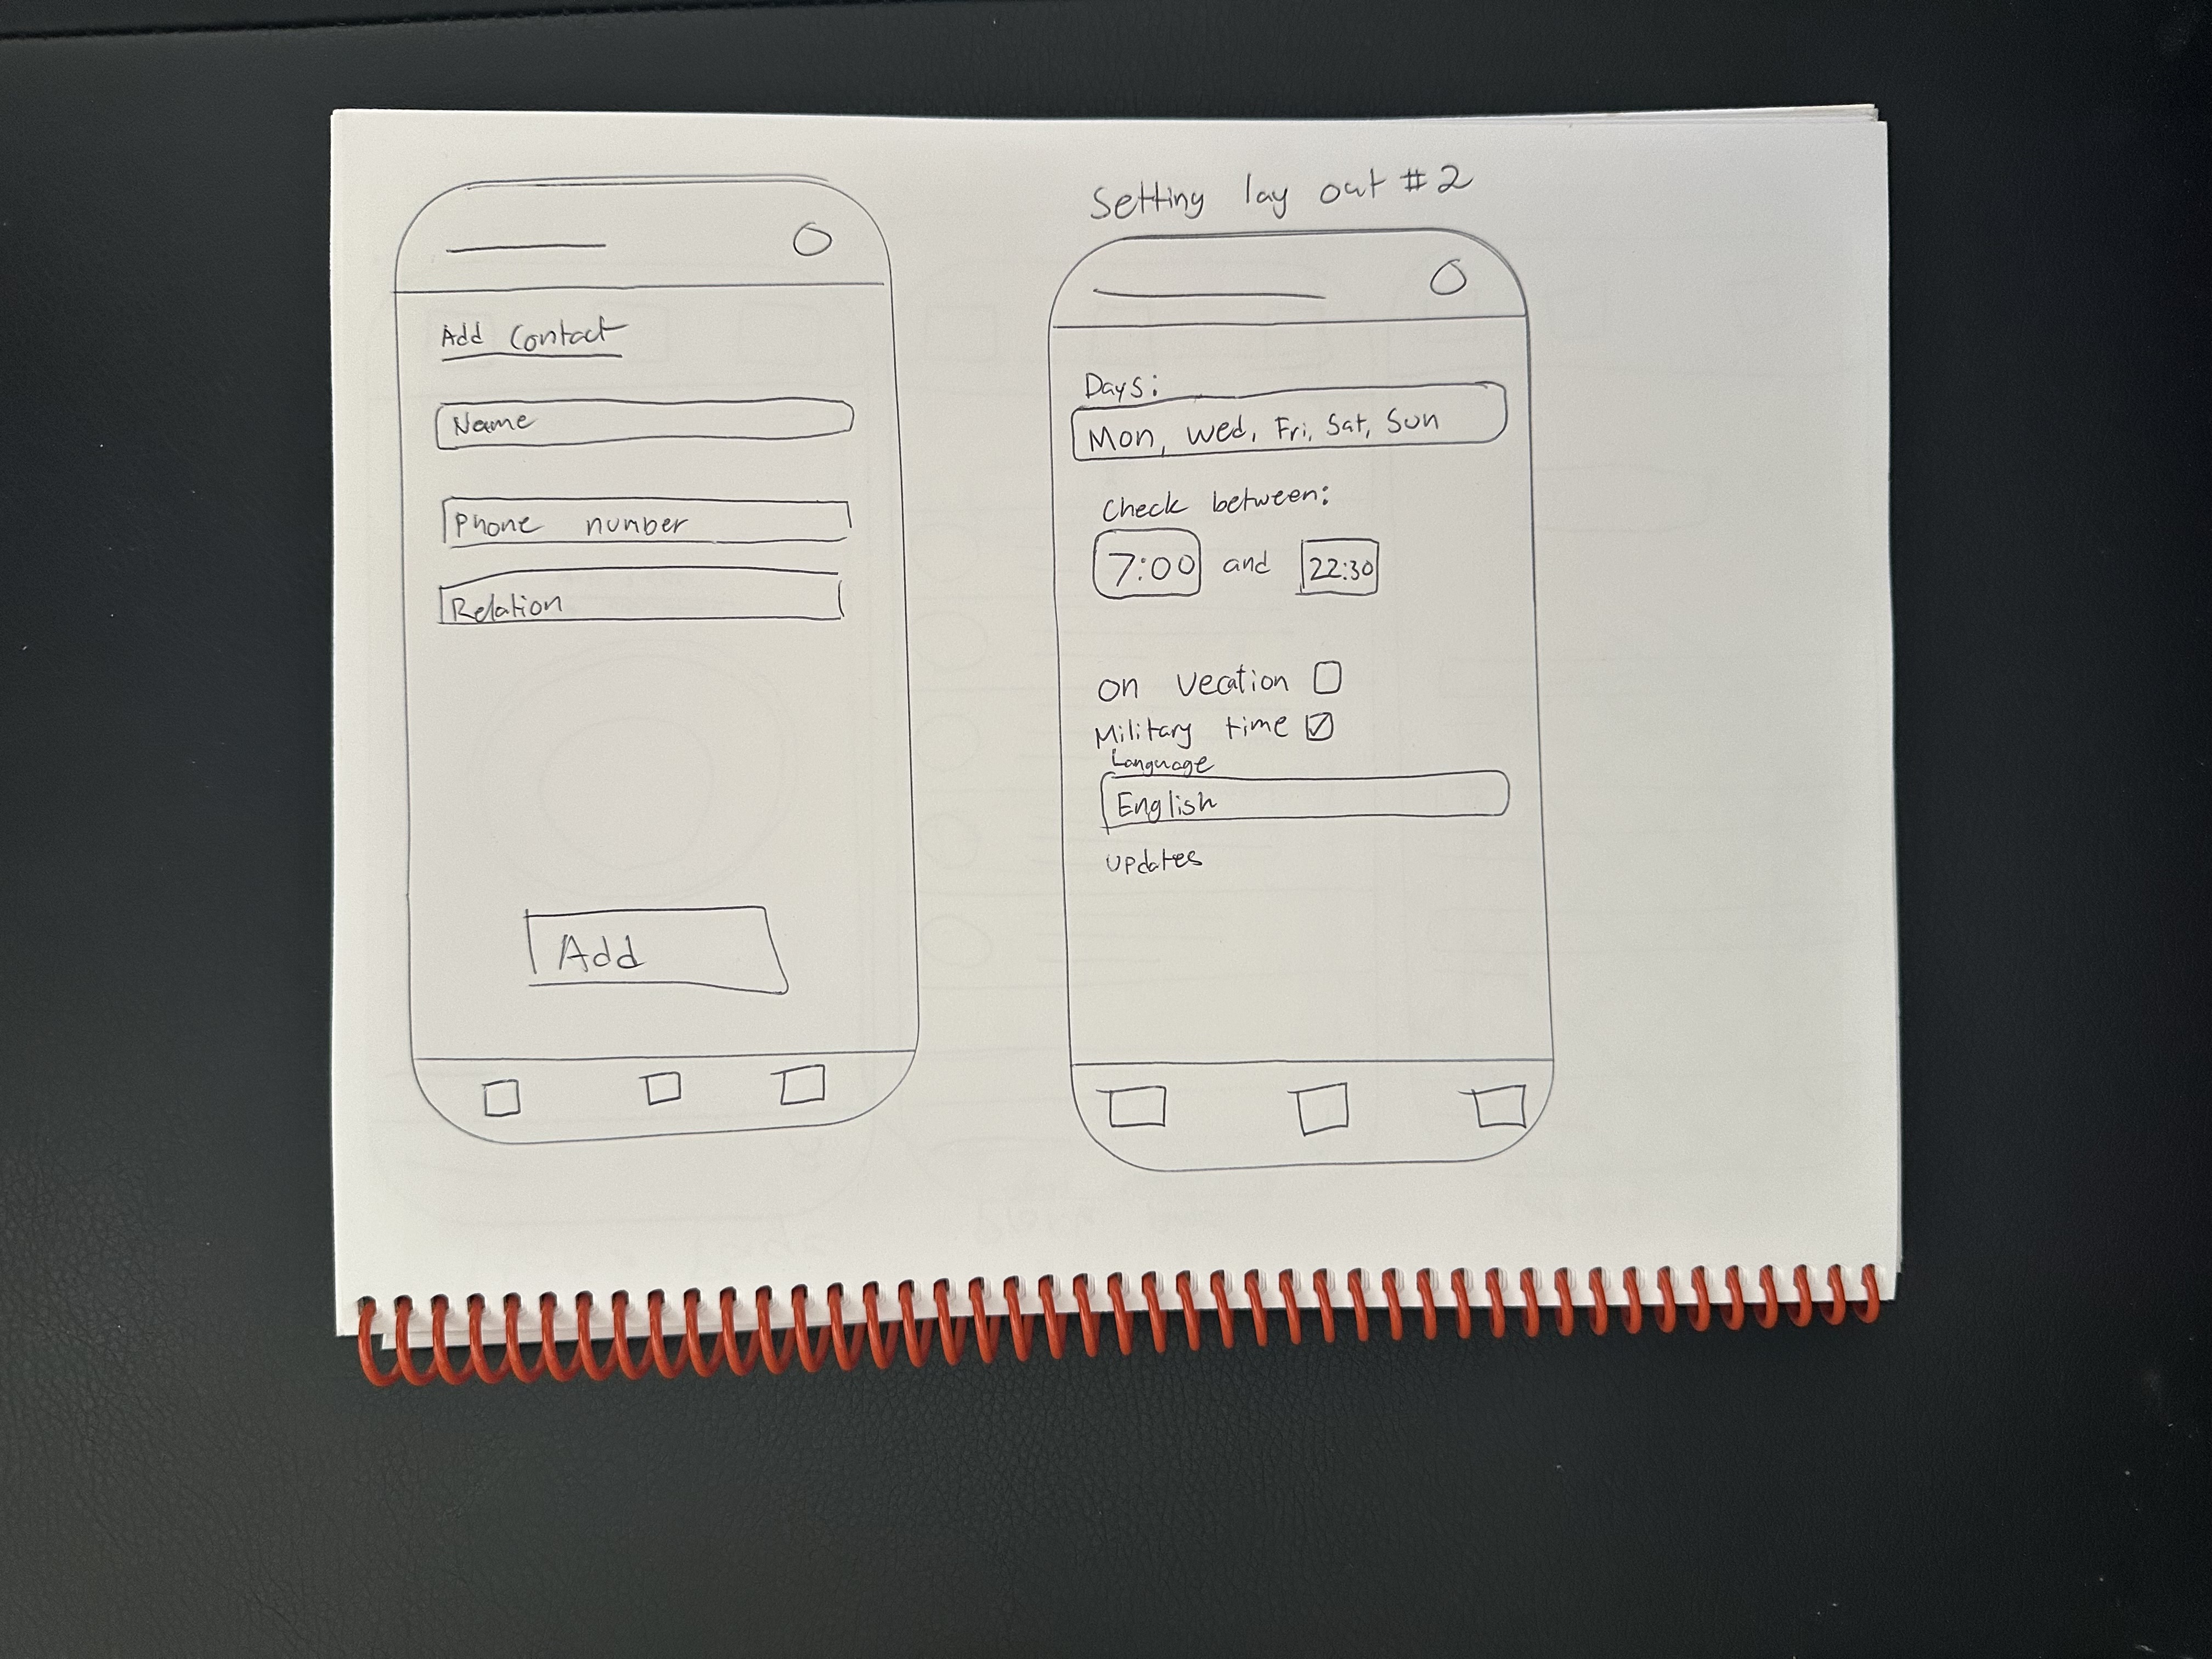 Add Contact
Name
Phone number
Relation
Add
Setting lay out #2
Days:
Mon, Wed, Fri, Sat, Sun
Check between:
7:00 and 22:30
on vecation
Military time
Language
English
updates